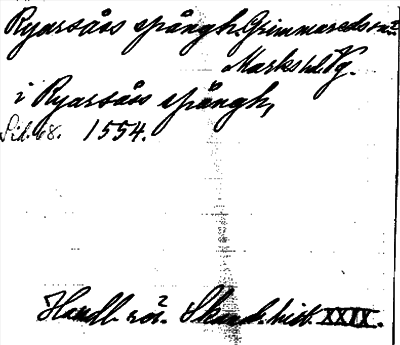 Ryarsåss spångh, Grimmareds sn
Marks hd Vg.
i Ryarsåss spångh,
Sid. 68. 1554.
Handl. rör. Skand. hist. XXIX.